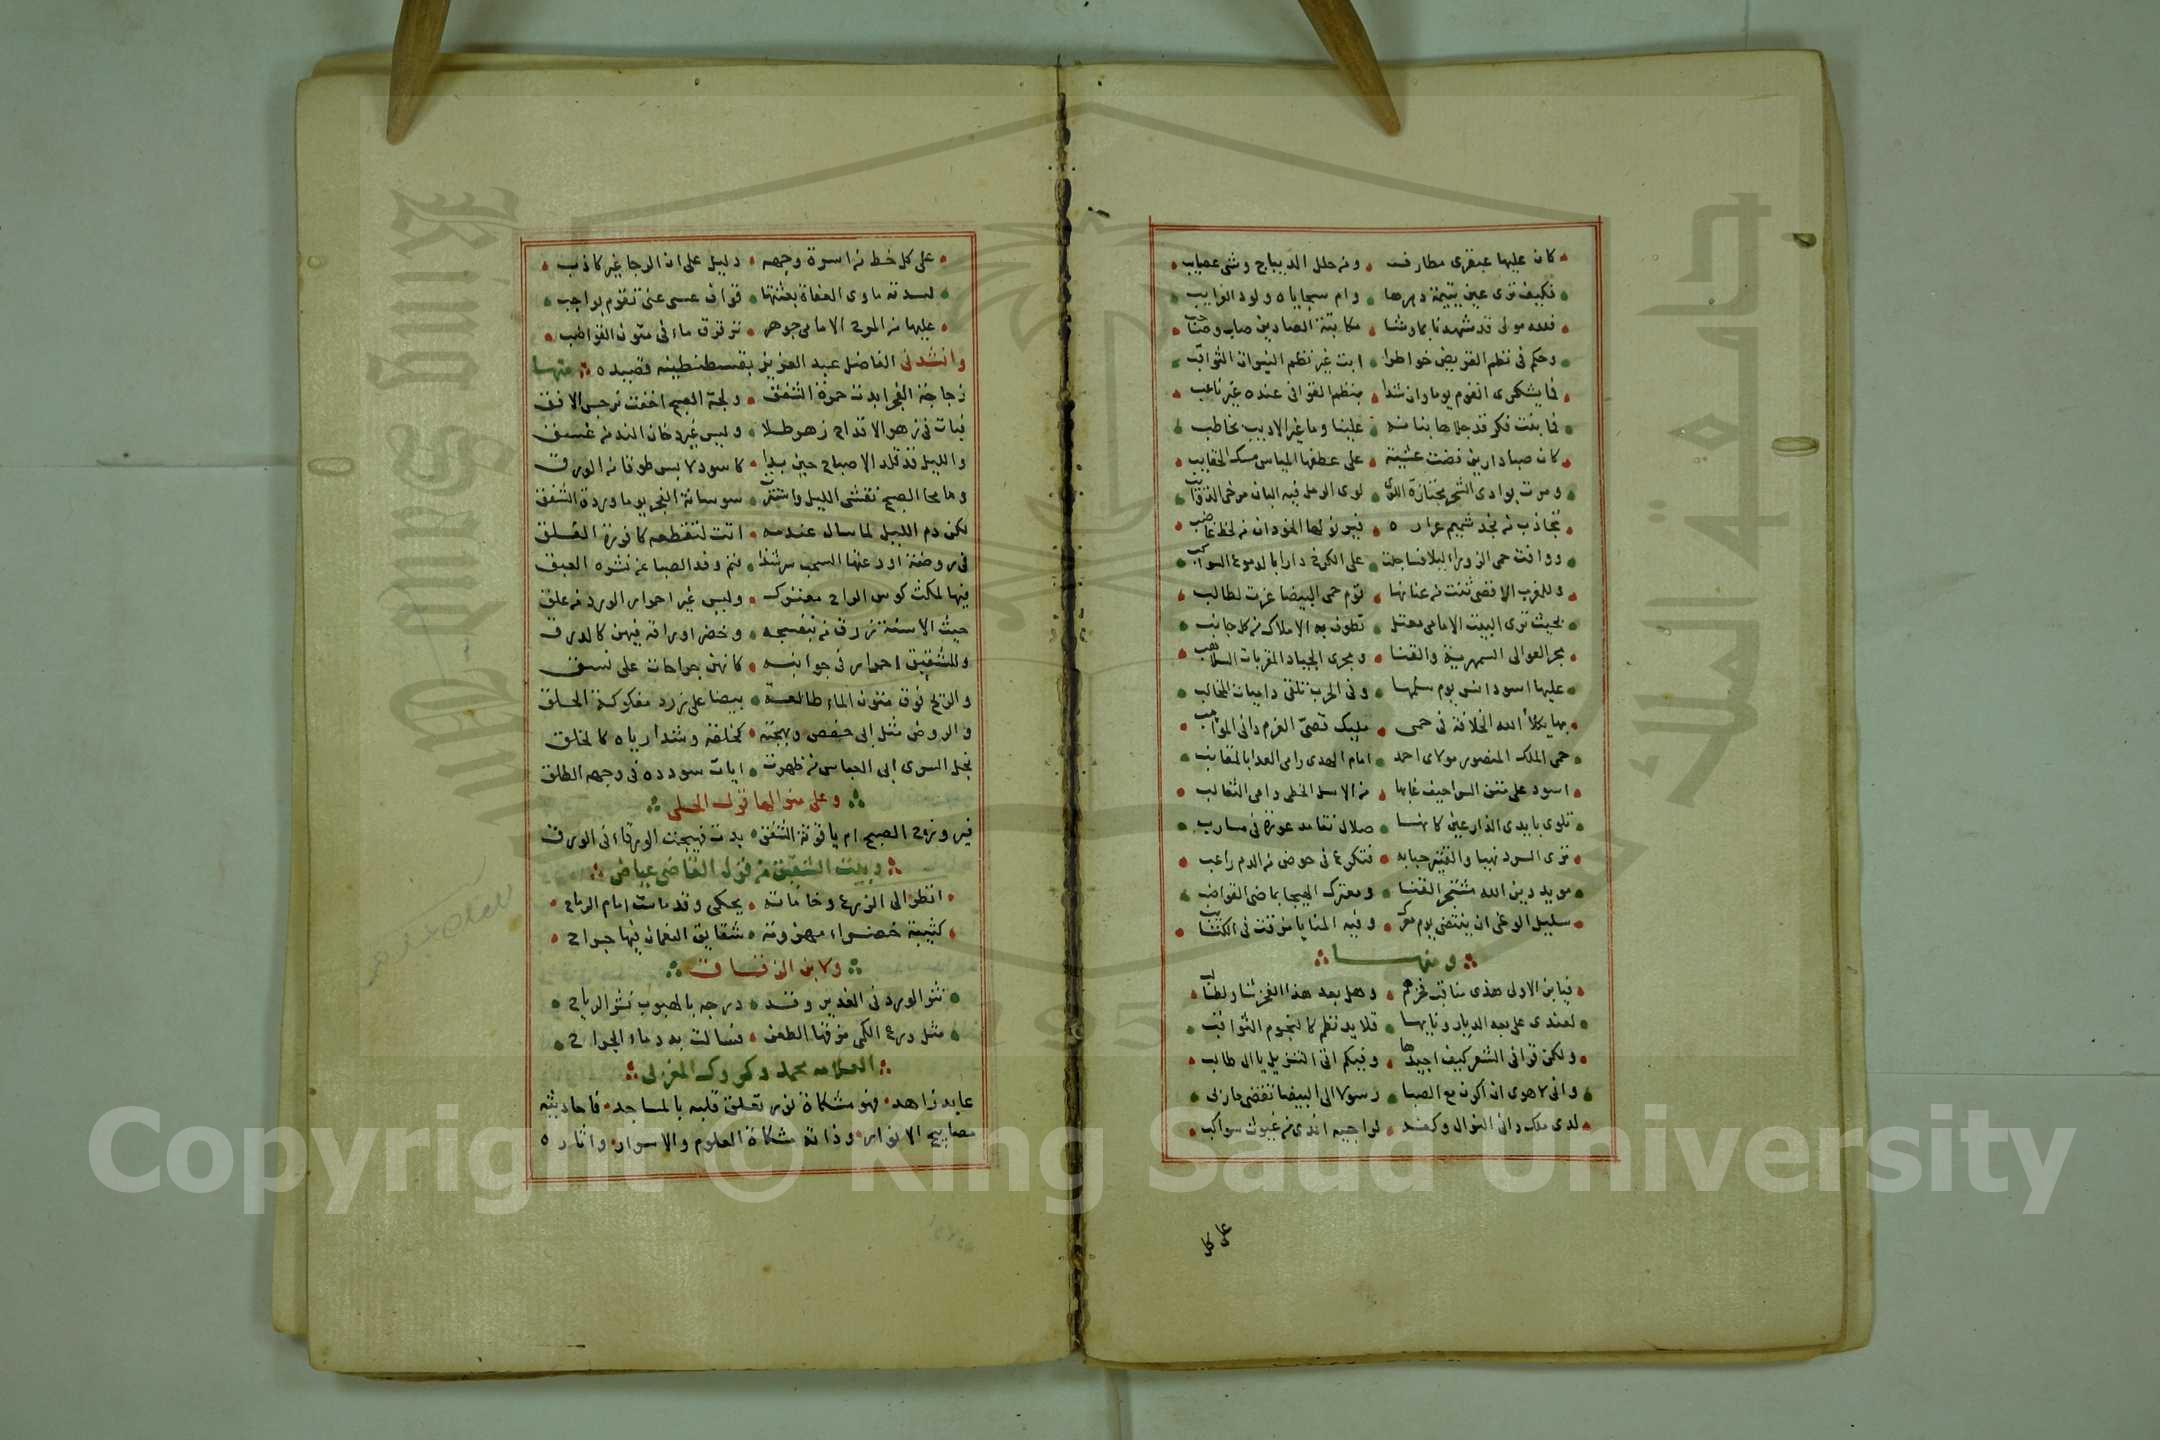 كان عليها عبقرى مطارف ومن حلل الديباج وشى عصايب
فكيف ترى عين يتيمة دهرها وام سجاياه ولود الغرايب
فلله مولى قد شهدنا بما وشا مكاتبة الصادين صاب وصائب
وحكم فى نظم القريض خواطرا ابت غير نظم النيران الثواقب
فما يشكرى القوم يوما وان شدا بنظم القوافى عنده غير ناعب
فما بنت فكر قد جلاها بنانه علينا وما غير الاديب بخاطب
كان صبا دارين فضت عشية على عطفها المياس مسك الحقايب
ومرت بوادى الشحر مجتازة اللوى لوى الرمل فيه البان مرخى الذوايب
تجاذب من نجد شميم عراره
ووافت حمى الزوراء ليلا فساجلت على الكرخ دارا بالدموع السواكب
وللغرب الاقصى ثنت من عنانها تؤم حمى البيضا عزت لطالب
بحيث ترى البيت الامامى معتل تطوف به الاملاك من كل جانب
بجر العوالى السمهرية والقنا ومجرى الجياد المقربات السلاهب
عليها اسود انس يوم سلمها وفى الحرب تلقى داميات المخالب
بها يكلأ الله الخلافة فى حمى مليك قصى العزم دانى المواهب
حمى الملك المنصور مولاى احمد امام الهدى رامى العدا بالمقانب
اسود على متن السراحيف غابها من الاسل الخطى دامى الثعالب
تلوى بايدى الدارعين كانها صلال تقامت عوذها فى مسارب
نرى السرد نهيا والقتير حبابه فتكرع فى حوض من الدم راعب
مويد دين الله مشتجر القنا ومعترك الهيجا بماضى القواضب
سليل الوغى ان ينتضى يوم معرك وفيه المنايا مزقت فى الكتايب
ومنها
فيا بن الاولى هذى مناقب فخرهم وهل بعد هذا الفخر شاو لطالب
لعندى على بعد الديار ونايها قلايد نظم كالنجوم الثواقب
ولكن قوافى الشعر كيف اجيدها وفيكم اتى التنزيل يا ال طالب
وانى لاهوى ان اكون مع الصبا رسولا الى البيضا تقضى مآربى
لدى ملك دانى النوال وكفه لراجيه اندى من غيوث سواكب
على كل
على كل خط من اسرة وجهه دليل على ان الرجا غير كاذب
لسدته ماوى العفاة بعثتها قواف عسى عنى تقوم بواجب
عليها من المدح الامامى جوهر ترقرق ماء فى متون القواضب
وانشدنى الفاضل عبد العزيز بقسطنطينيه قصيده منها
زجاجة الفجر ابدت حمرة الشفق ولجة الصبح اخفت نرجس الافق
فبات فى زهو الاقداح زهو طلا وليس غير دخان الند من غسق
والليل قد قلد الاصباح حين بدا كاسود لابس طوقا من الورق
وما محا الصبح نقش الليل واشتقر سوسانة الفجر يوما وردة الشفق
لكن دم الليل لما سال عندمه اتت لتقطعه كافورة الفلق
فى روضة اودعتها السحب سر شذا فنم وفد الصبا عن نشره العبق
فيها لمكث كوس الراح معترك وليس غير احمرار الورد من علق
حيث الاسنة زرق من بنفسجه وخضر اوراقه فيهن كالدرق
وللشقيق احمرار فى جوانبه كانهن جراحات على نسق
والريح فوق متون الماء طالعة بيضا على زرد مفكوكة الحلق
والروض مثل ابى حفص وبهجته كخلقه وشذا رياه كالخلق
نجل السرى ابى العباس من ظهرت ايات سودده فى وجهه الطلق
وعلى منوالها قول الحلى
فيروزج الصبح ام ياقوتة الشفق بدت فهيجت الورقاء فى الورق
وبيت الشقيق من قول القاضى عياض
انظر الى الزرع وخاماته يحكى وقد ماست امام الرياح
كتيبة خضراء مهزومة شقايق النعمان فيها جراح
ولابن الزقاق
نثر الورد فى الغدير وقد درجه بالهبوب نشر الرياح
مثل درع الكمى مزقها الطعن فسالت به دماء الجراح
العلامه محمد وكروك المغربى
عابد زاهد فهو مشكاة نور تعلق قلبه بالمساجد فاحاديثه
مصابيح الانوار وذاته مشكاة العلوم والاسرار واثاره
Copyright © King Saud University
King Saud University
جامعة الملك سعود
195